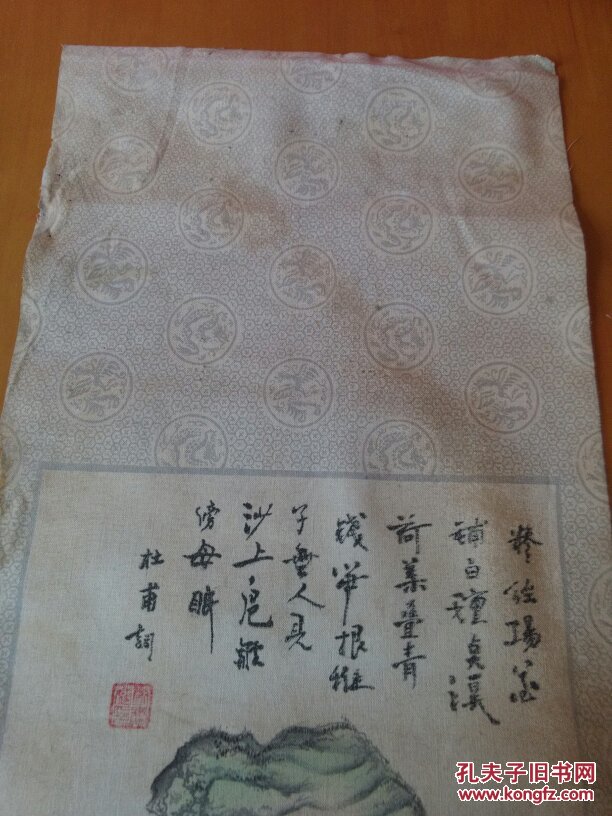 糝徑楊花
鋪白氈点溪
荷葉疊青
錢笋根稚
子無人見
沙上鳧雛
傍母眠
杜甫詞
孔夫子旧书网
www.kongfz.com